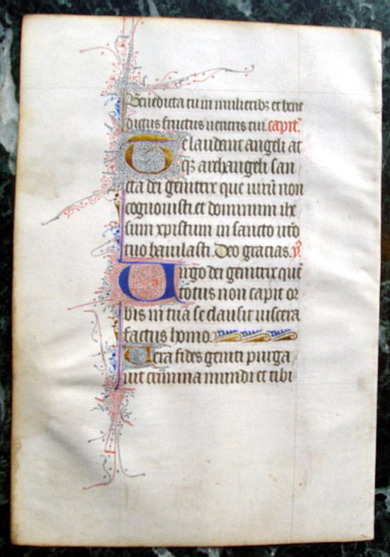 Benedicta tu in mulieribz et bene
dictus fructus ventris tui. capit'
Te laudent angeli at
qz archangeli san
cta dei genitrix que virū non
cognovisti et dominum ihe
sum xpistum in sancto utero
tuo baiulasti. Deo gracias. v'
Uirgo dei genitrix que
totus non capit or
bis in tua se clausit viscera
factus homo.
Uera fides geniti purga
vit crimina mundi et tibi